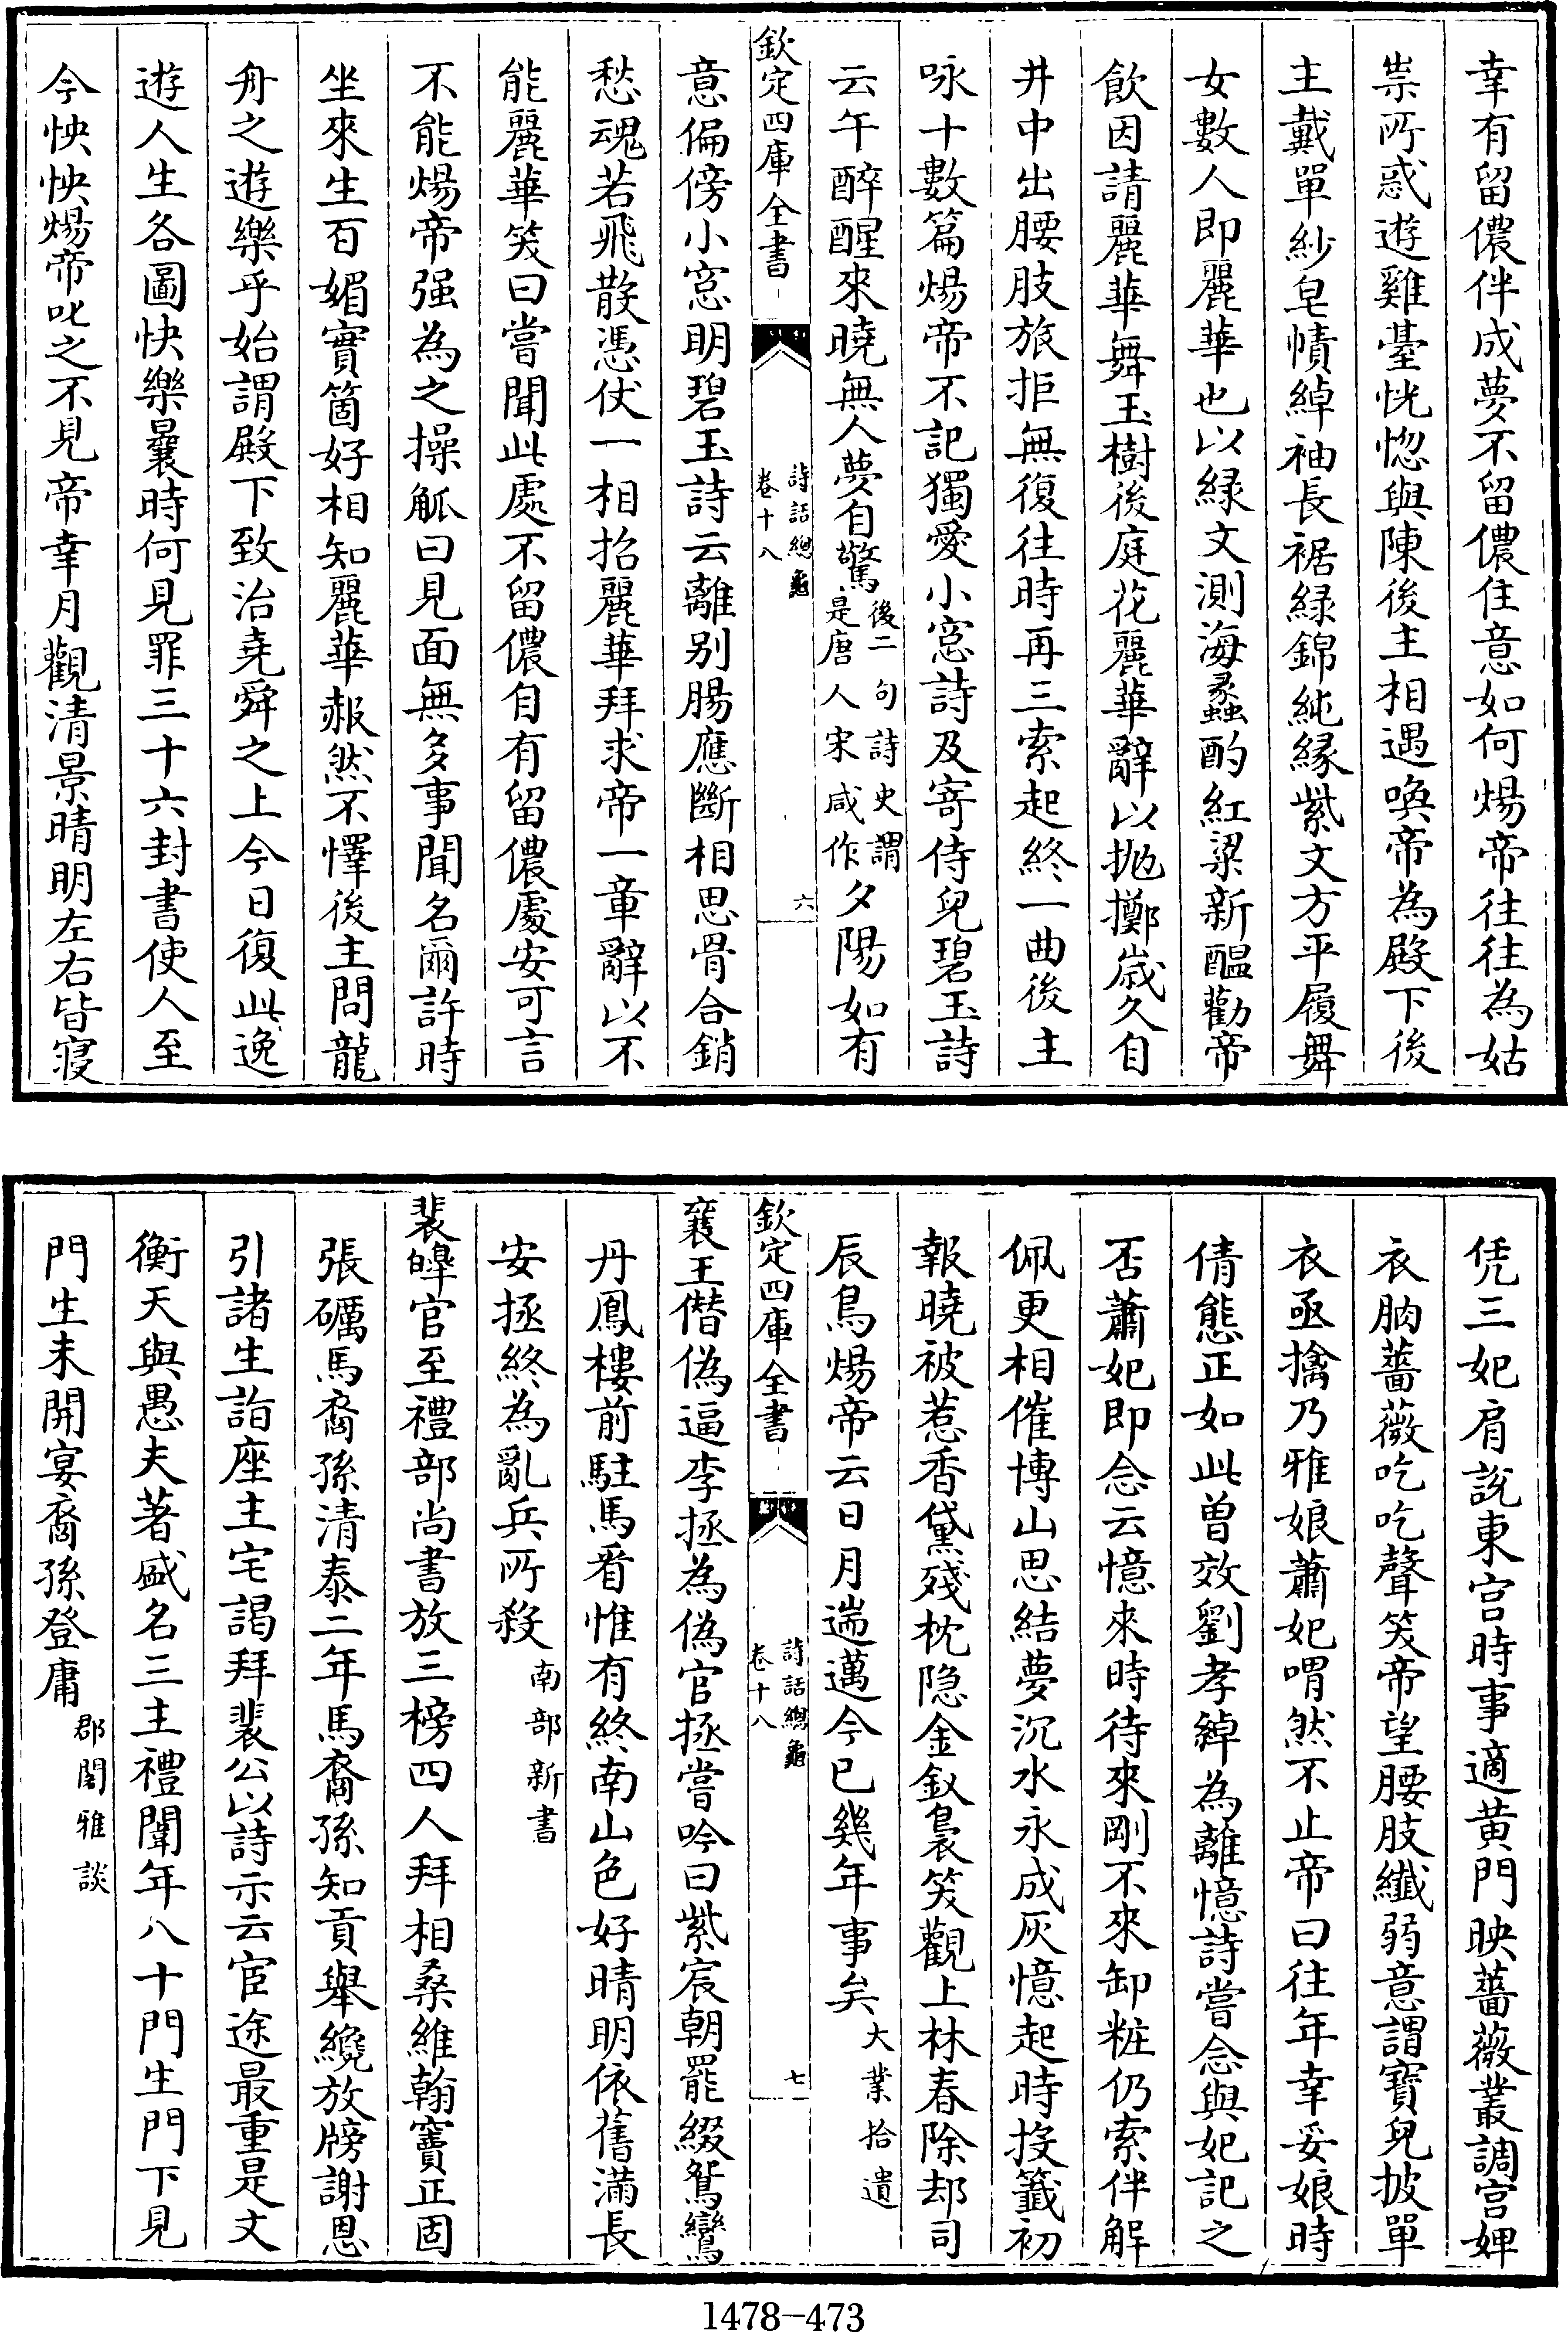 幸有留儂伴成夢不留儂住意如何煬帝往往為姑
祟所惑遊雞臺恍惚與陳後主相遇喚帝為殿下後
主戴單紗皂幘綽袖長裾緑錦純緣紫文方平履舞
女數人即麗華也以緑文測海蠡酌紅粱新醖勸帝
飲因請麗華舞玉樹後庭花麗華辭以拋擲嵗久自
井中出腰肢旅拒無復往時再三索起終一曲後主
咏十數篇煬帝不記獨愛小窓詩及寄侍兒碧玉詩
云午醉醒來曉無人夢自驚後二句詩史謂是唐人宋咸作夕陽如有
欽定四庫全書 詩話總龜 卷十八 六
意偏傍小窓明碧玉詩云離别腸應斷相思骨合銷
愁魂若飛散憑仗一相招麗華拜求帝一章辭以不
能麗華笑曰嘗聞此處不留儂自有留儂處安可言
不能煬帝强為之操觚曰見面無多事聞名爾許時
坐來生百媚實箇好相知麗華赧然不懌後主問龍
舟之遊樂乎始謂殿下致治堯舜之上今日復此逸
遊人生各圖快樂曩時何見罪三十六封書使人至
今怏怏煬帝叱之不見帝幸月觀清景晴明左右皆寢
凭三妃肩說東宫時事適黄門映薔薇叢調宫婢
衣胸薔薇吃吃聲笑帝望腰肢纖弱意謂寶兒披單
衣亟擒乃雅娘蕭妃喟然不止帝曰往年幸妥娘時
倩態正如此曽效劉孝綽為離憶詩嘗念與妃記之
否蕭妃即念云憶來時待來剛不來卸粧仍索伴解
佩更相催博山思結夢沉水永成灰憶起時投籤初
報曉被惹香黛殘枕隐金釵裊笑觀上林春除却司
辰鳥煬帝云日月遄邁今已幾年事矣大業拾遺
欽定四庫全書 詩話總龜 卷十八 七
襄王僭偽逼李拯為偽官拯嘗吟曰紫宸朝罷綴鴛鸞
丹鳳樓前駐馬看惟有終南山色好晴明依舊滿長
安拯終為亂兵所殺南部新書
裴皥官至禮部尚書放三榜四人拜相桑維翰竇正固
張礪馬裔孫清泰二年馬裔孫知貢舉纔放牓謝恩
引諸生詣座主宅謁拜裴公以詩示云宦途最重是文
衡天與愚夫著盛名三主禮闈年八十門生門下見
門生未開宴裔孫登庸郡閣雅談
1478-473